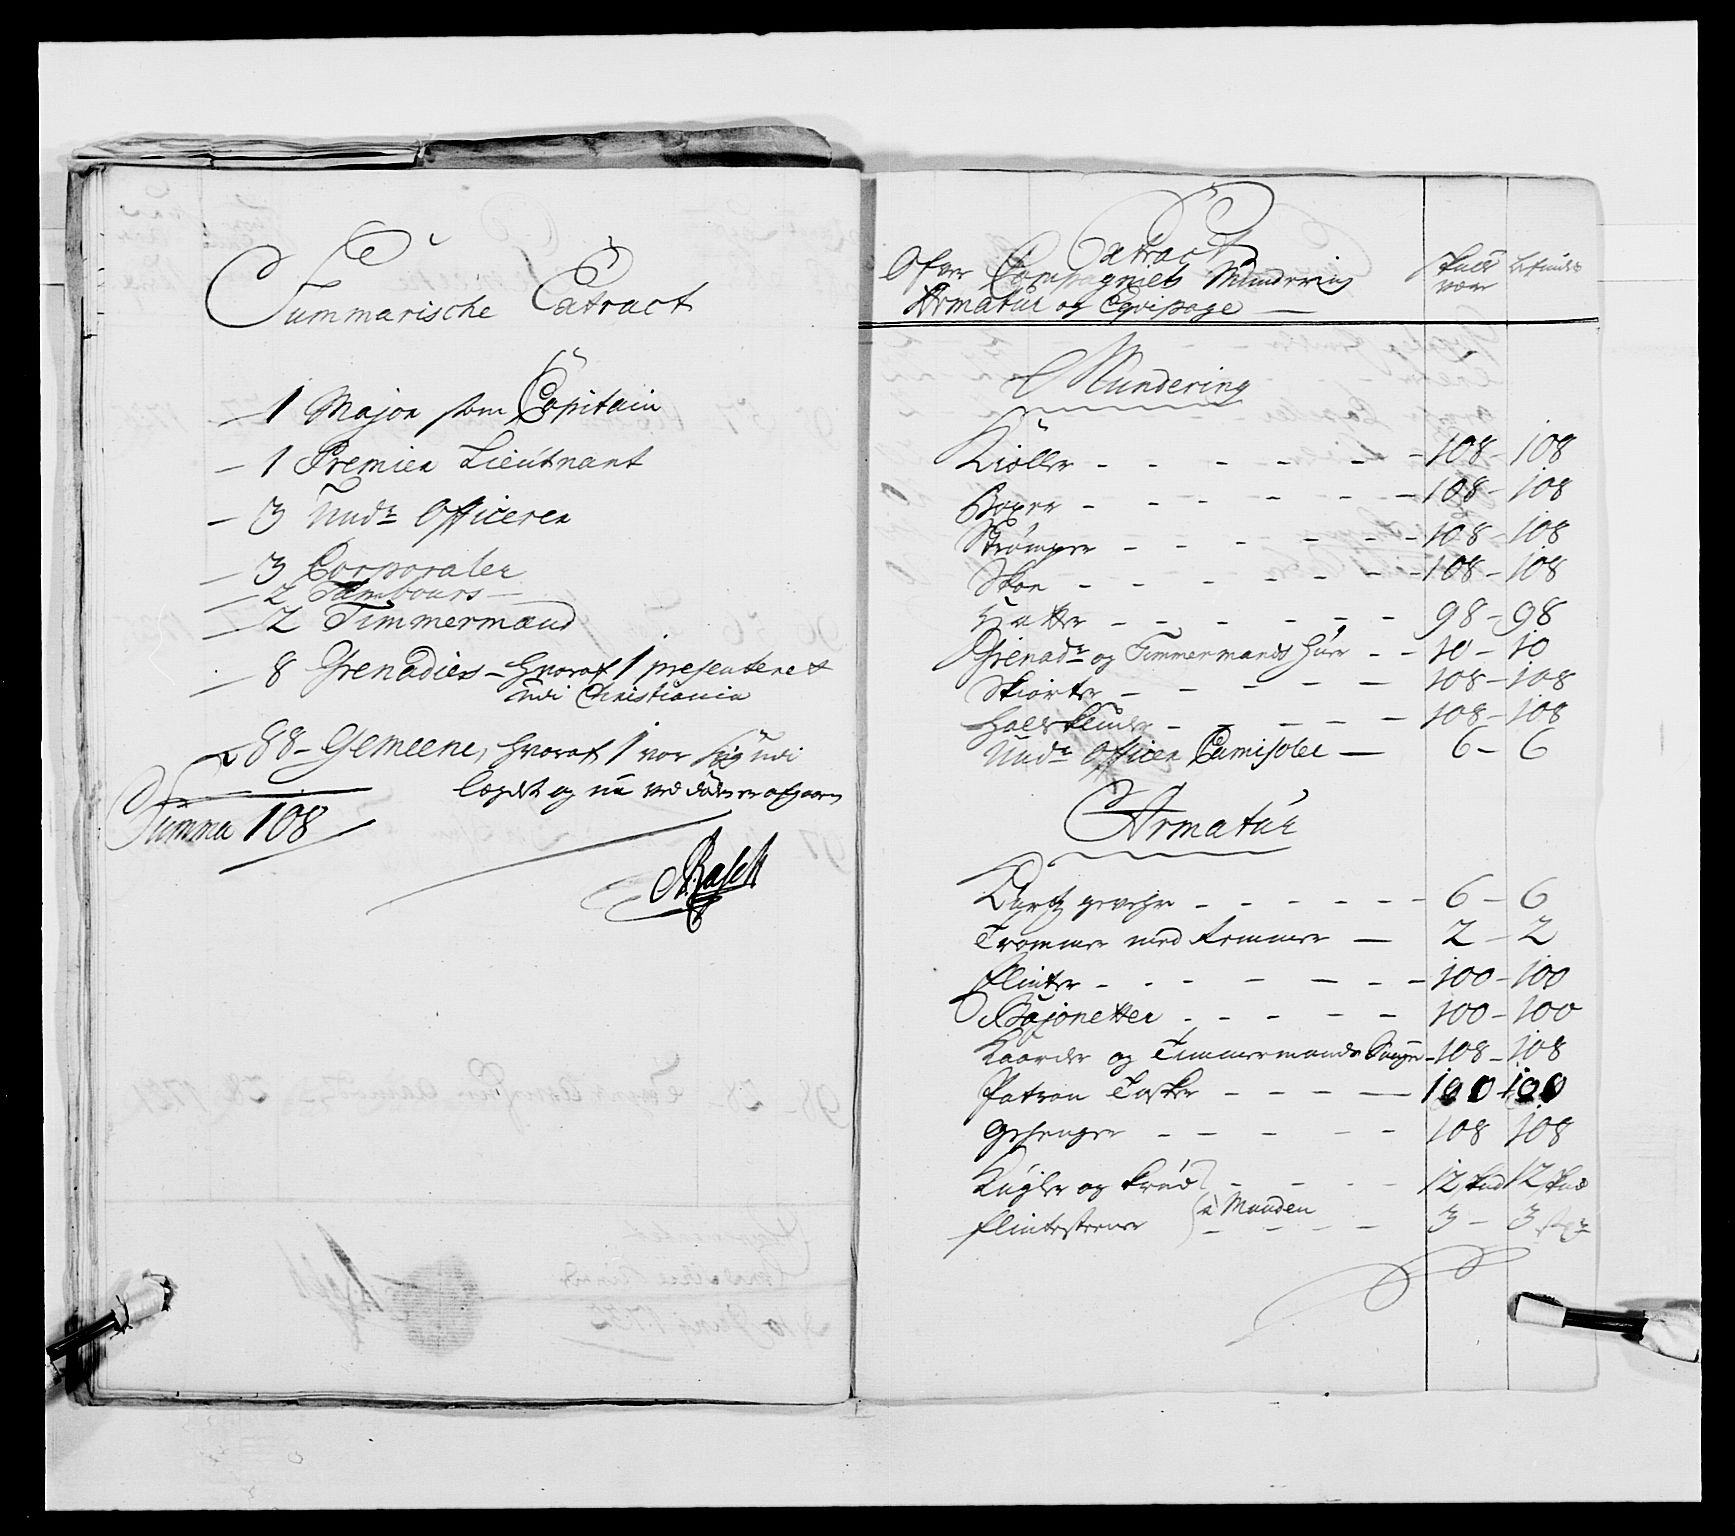 Summarische Extract
1 Major som Capitain
1 Premier Lieutnant
3 Undr Officerer
3 Corporaler
2 Tambours
2 Timmermænd
8 Grenadiers – hvoraf 1 presenteret
udi Christiania
88 – Gemeene, hvoraf 1 var siug udi
Lægdt og nu ved døden afgaaen
Summa 108
Rasch
Extract
Ofver Compagniets Mundering
Armatur og Eqvipage
skull være
befindes
Mundering
Kiøller - - - - - - 108 - 108
Boxer - - - - - - 108 - 108
Strømper - - - - - - 108 - 108
Skoe - - - - - - 108 - 108
Hatter - - - - - - 98 - 98
Grenadr og Timmermands huer - - 10 - 10
Skiorter - - - - - 108 - 108
Halsklude - - - - - 108 - 108
Undr Officer Camisoler — 6 - 6
Armatur
Kortz gevehr - - - - - - 6 - 6
Trommer med Remmer — 2 - 2
Flinter - - - - - - 100 - 100
Bajonetter - - - - - 100 - 100
Kaarder og Timmermands - 108 - 108
Patron Tasker - - - — 100 - 100
Gehenger - - - - - 108 108
Kugler og Krud - - - - 12 skud 12 skud
à Manden
Flintesteener - - - - 3 - 3